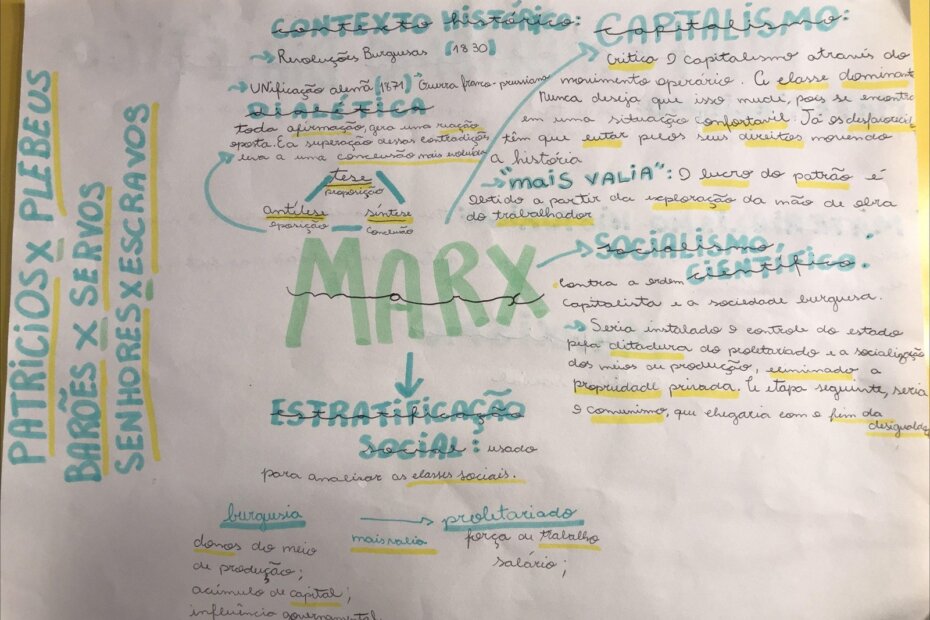 CONTEXTO HISTÓRICO:
Revoluções Burguesas (1830)
UNificação alemã (1871) Guerra franco-prussiano
DIALÉTICA
toda afirmação, gera uma reação
oposta. E a superação dessas contradições
leva a uma conclusão mais evoluída
tese
proposição
antítese
oposição
síntese
conclusão
CAPITALISMO:
Critica o capitalismo através do
movimento operário. A classe dominante
Nunca deseja que isso mude, pois se encontra
em uma situação confortável. Já os desfavorecid
têm que lutar pelos seus direitos movendo
a história
"mais VALIA": O lucro do patrão é
obtido a partir da exploração da mão de obra
do trabalhador
SOCIALISMO
CIENTÍFICO.
contra a ordem
capitalista e a sociedade burguesa.
Seria instalado o controle do estado
pela ditadura do proletariado e a socialização
dos meios de produção, eliminado a
propriedade privada. E etapa seguinte, seria
o comunismo, que chegaria com o fim da
desigualda
MARX
PATRÍCIOS X PLEBEUS
BARÕES X SERVOS
SENHORES X ESCRAVOS
ESTRATIFICAÇÃO
SOCIAL: usado
para analizar as classes sociais.
burguesia
mais valia
proletariado
donos do meio
de produção;
acúmulo de capital;
influência governamental
força de trabalho
salário;